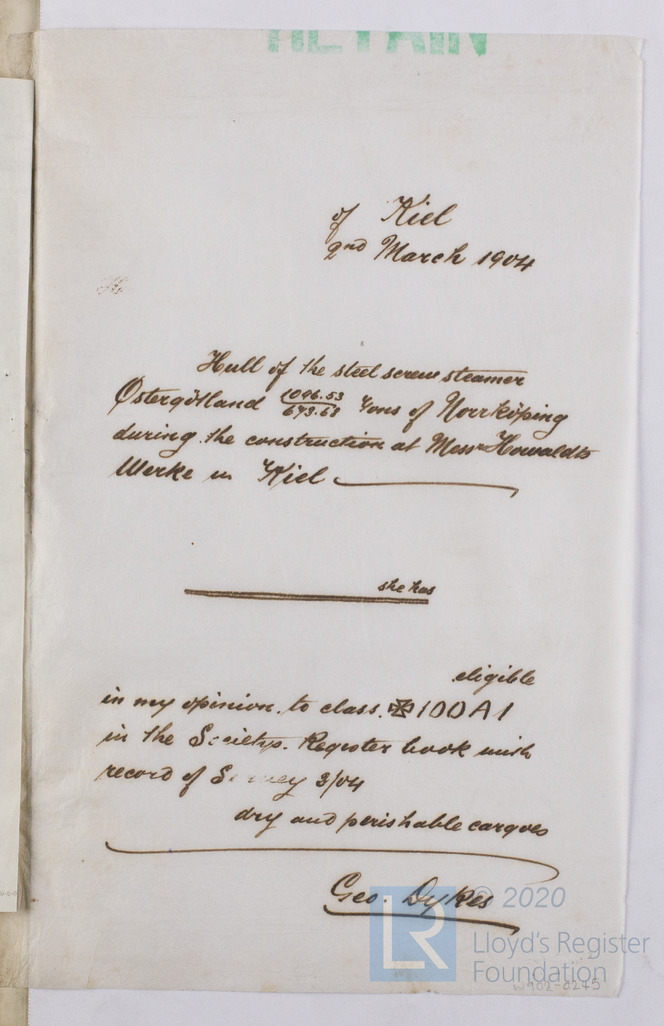 RETAIN
of Kiel
2nd March 1904
Hull of the steel screw steamer
Östergötland 1096.53/673.63 Tons of Norrköping
during the construction at Messrs Howaldts
Werke in Kiel
she has
eligible
in my opinion to class ✠100A1
in the Societys. Register book with
record of Survey 3/04
dry and perishable cargoes
Geo. Dykes
© 2020
LR
Lloyd's Register
Foundation
W902-0245